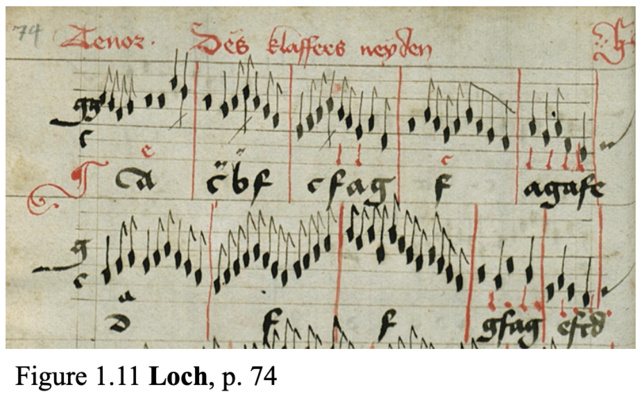 74 Tenor. Des klaffers neyden
g
c
c
a c b f c f a g f a g a f e
g
c
a
d f f g f a g e f c d
Figure 1.11 Loch, p. 74